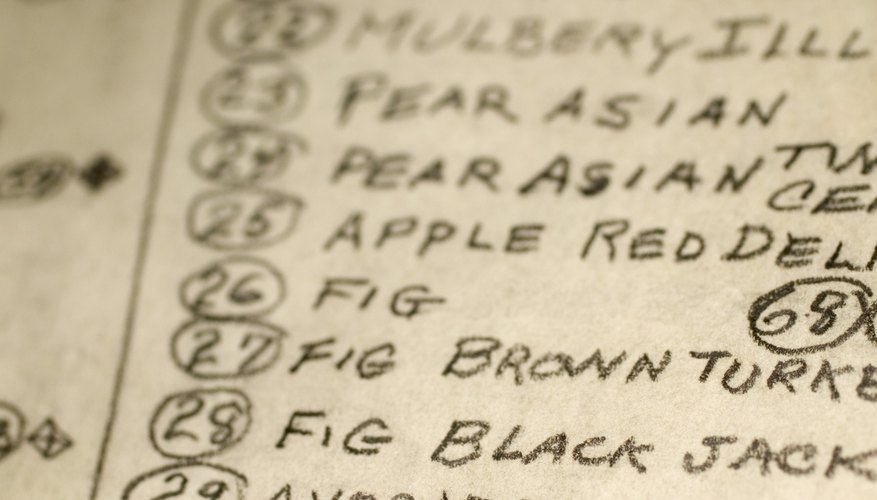 22 MULBERY ILLL
23 PEAR ASIAN
24 PEAR ASIAN TW
CE
59
25 APPLE RED DELI
26 FIG
68
27 FIG BROWN TURKE
28 FIG BLACK JACK
29